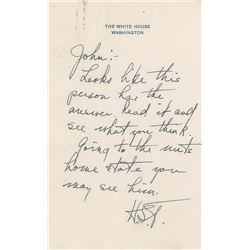 THE WHITE HOUSE
WASHINGTON
John:-
Looks like this
person has the
answer. Read it and
see what you think.
Going to the nuts
home state you
may see him.
HST.